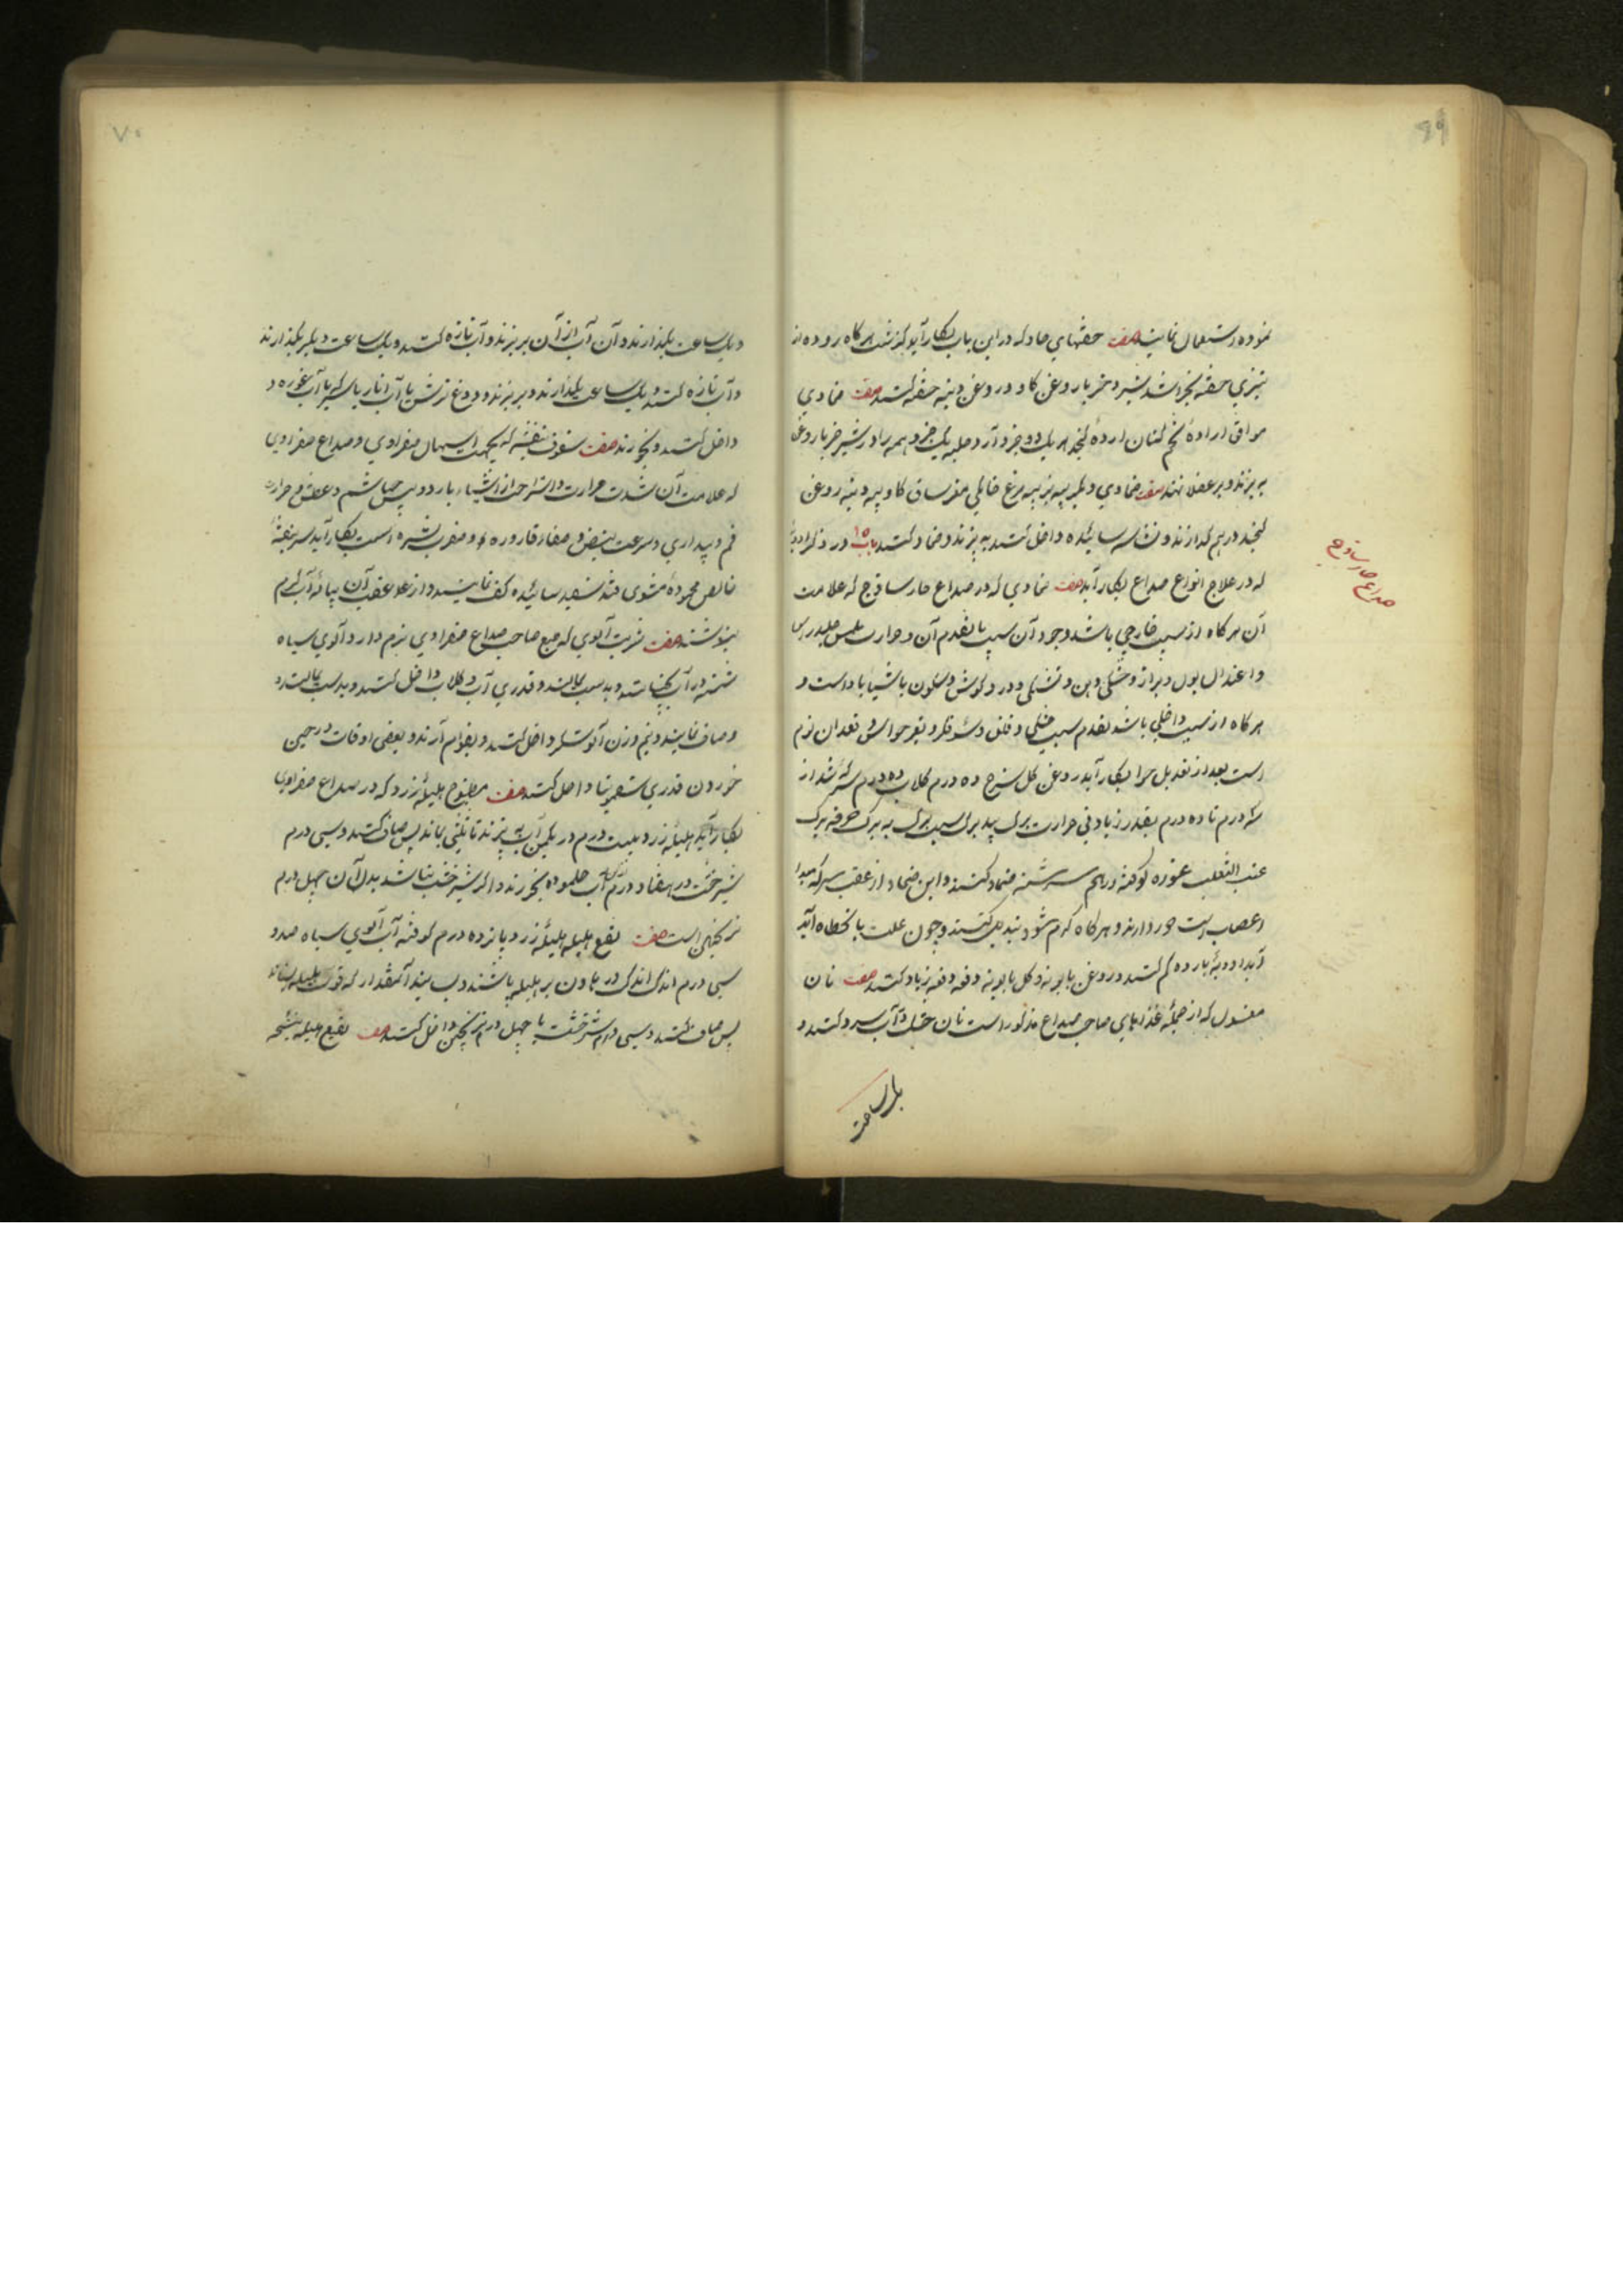 ۶۹
نموده استعمال نمایند صفت حقنهای حاد که در این باب بکار آید گذشت هرگاه روده از
تیزی حقنه بخراشد بشیر خر با روغن گاو و روغن دنبه حقنه کنند صفت ضمادی
موافق اراده تخم کتان ارده کنجد هر یک دو جزو آرد حلبه یک جزو همه را در شیر خر با روغن
به پزند و بر عضله نهند صفت ضمادی دیگر پیه بز پیه مرغ خانگی مغز ساق گاو پیه دنبه روغن
کنجد در هم گدازند و نشاسته سائیده داخل کنند به پزند و ضماد کنند باب ۱۵ در ذکر ادویهٔ
که در علاج انواع صداع بکار آید صفت ضمادی که در صداع حار ساذج که علامت
صداع حار ساذج
آن هرگاه از سبب خارجی باشد وجود آن سبب یا تقدم آن و حرارت ملمس جلد راس
و اعتدال بول و براز و خشکی دهن و تشنگی و درد گوش و سکون باشیا باد است و
هرگاه از سبب داخلی باشد تقدم سبب خشکی و قلق و سوء فکر و تغیر حواس و فقدان لوازم
است بعد از تعدیل هوا بکار آید روغن گل سرخ ده درم گلاب ده درم سرکه شد از
سه درم تا ده درم بقدر زیادتی حرارت برگ بید برگ سیب برگ به برگ خرفه برگ
عنب الثعلب غوره کوفته در هم سرشته ضماد کنند و این ضماد از عقب سر که مبدا
اعصابست دور دارند و هرگاه گرم شود تبدیل کنند و چون علت بانحطاط آید
آید ادویهٔ بارده کم کنند و روغن بابونه و گل بابونه دفعه دفعه زیاد کنند صفت نان
مغسول که از جملهٔ غذاهای صاحب صداع مذکور است نان خشک در آب سرد کنند و
یکساعت
۷۰
و یکساعت بگذارند و آن آب از آن بریزند و آب تازه کنند و یکساعت دیگر بگذارند
و آب تازه کنند و یکساعت بگذارند و بریزند و دوغ ترش یا آب انار یا سرکه یا آب غوره
داخل کنند و بخورند صفت سفوف بنفشه که بجهت اسهال صفراوی و صداع صفراوی
که علامت آن شدت حرارت و استراحت از اشیاء بارد و یبس خیاشیم و عطش و مرارت
فم و بیداری و سرعت نبض و صفار قاروره و و ضرب بشره است بکار آید سر بنفشهٔ
خالص محمودهٔ مشوی قند سفید سائیده کف نمایند و از علا عقب آن پیاله آب گرم
بنوشند صفت شربت آلوی که طبع صاحب صداع صفراوی نرم دارد آلوی سیاه
شسته در آب بخیسانند و بدست بمالند و قدری آب و گلاب داخل کنند و بدست بمالند
و صاف نمایند و نیم وزن آلو شکر داخل کنند و بقوام آرند و بعضی اوقات در حین
خوردن قدری سقمونیا داخل کنند صفت مطبوخ هلیلهٔ زرد که در صداع صفراوی
بکار آید هلیلهٔ زرد بیست درم در یکمن آب به پزند تا ثلثی بماند پس صاف کنند و سی درم
شیرخشت در هفتاد درم از آن آب حل نموده بخورند و اگر شیرخشت نباشد بدل آن چهل درم
ترنجبین است صفت نقع هلیله هلیلهٔ زرد پانزده درم کوفته آب آلوی سیاه صد و
سی درم اندک اندک در هاون بر هلیله پاشند و بسایند آنمقدار که قوت هلیله بستاند
پس صاف کنند و سی درم شیرخشت یا چهل درم ترنجبین داخل کنند صفت نقیع هلیله بنسخه